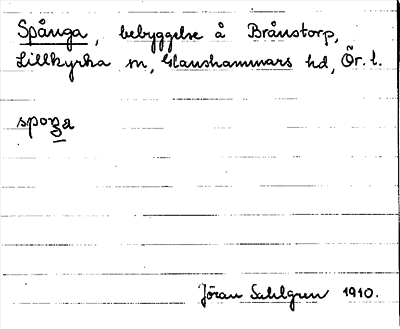 Spånga, bebyggelse å Brånstorp,
Lillkyrka sn, Glanshammars hd, Ör. l.
Jöran Sahlgren 1910.